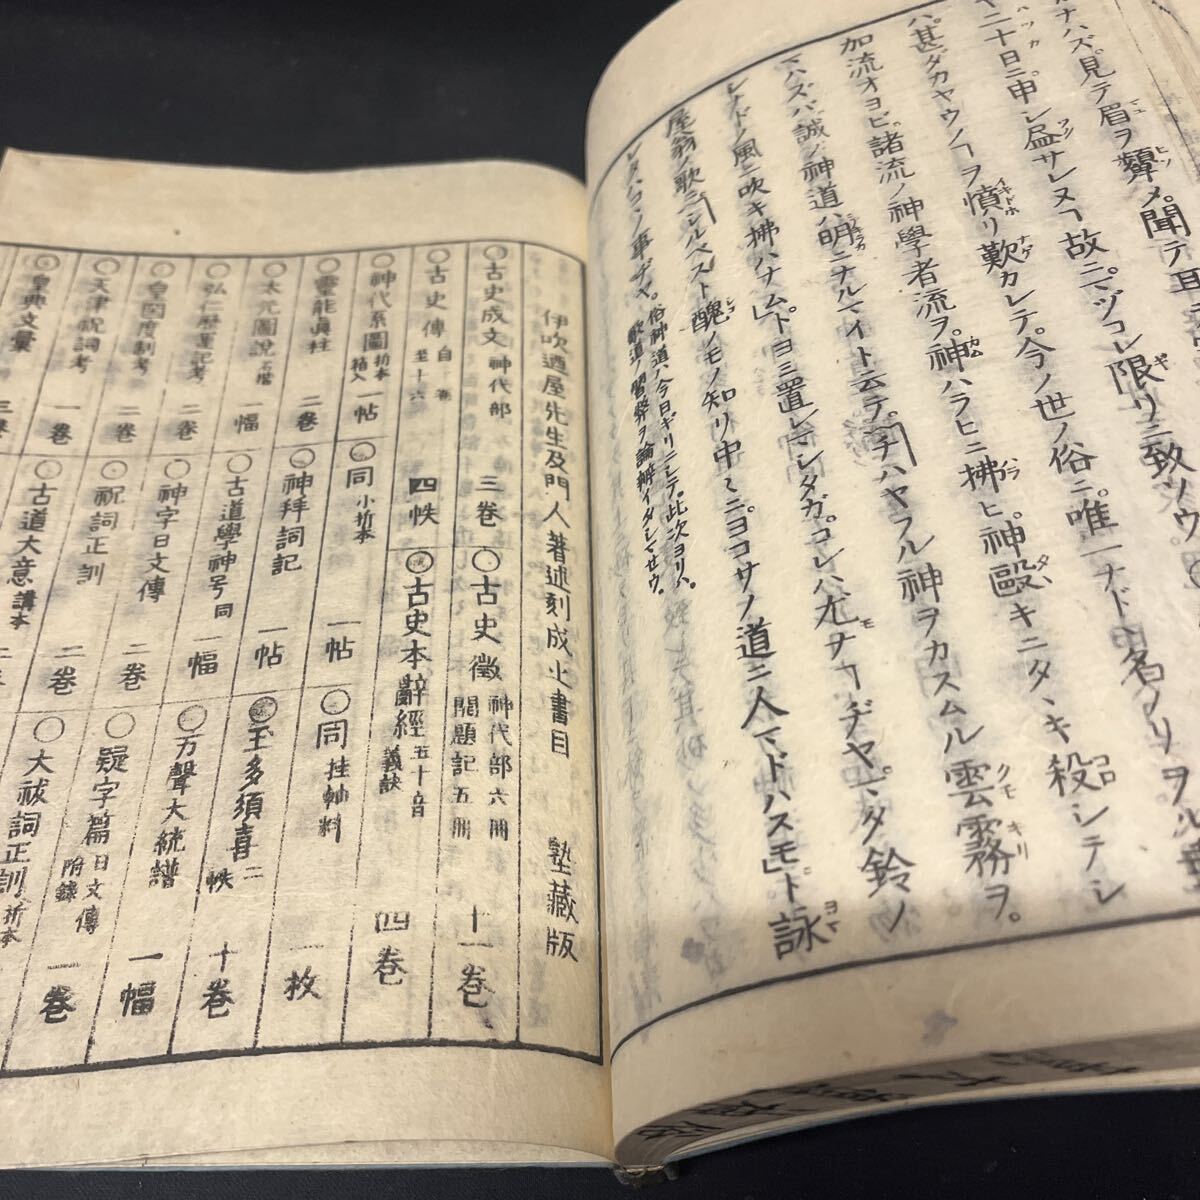 ナハズ。見テ眉ヲ顰メ。聞テ耳
ヤニ十日ニ。申シ盡サレヌヿ故ニ。マヅコレ限リニ致ソウ。
ハ。甚ダカヤウノヿヲ憤リ歎カレテ。今ノ世ノ俗ニ。唯一ナド、名ノリヲル
加流オヨビ。諸流ノ神學者流ヲ。神ハラヒニ拂ヒ。神毆キニタヽキ殺シテシ
マハズバ。誠ノ神道ハ。明ニナルマイト云テ。「チハヤフル神ヲカスムル雲霧ヲ。
シナドノ風ニ吹キ拂ハナム。」トヨミ置レマシタガ。コレハ尤ナヿヂヤ。マタ鈴ノ
屋翁ノ歌ニ。「シルベスト醜ノモノ知リ中々ニ。ヨコサノ道ニ人マドハスモ」。ト詠
レタハコノ事ヂヤ。
俗神道ハ今日ギリニシテ。此次ヨリハ。
歌道ノ闇弊ヲ論辨イタシマセウ。
伊吹廼屋先生及門人著述刻成之書目 塾藏版
○古史成文 神代部 三卷
○古史徴 神代部六冊 開題記五冊 十一卷
○古史傳 自 至十六 四帙
○古史本辭經 五十音義訣 四卷
○神代系圖 折本箱入 一帖
○同 小折本 一帖
○同 挂軸料 一枚
○靈能眞柱 二卷
○神拜詞記 一帖
○玉多須喜 二帙 十卷
○太元圖說 一幅
○古道學神号 同 一幅
○万聲大統譜 一幅
○弘仁歴運記考 二卷
○神字日文傳 二卷
○疑字篇 日文傳附錄 一卷
○皇國度制考 二卷
○祝詞正訓 二卷
○大祓詞正訓 折本
○天津祝詞考 一卷
○古道大意 講本 二卷
○皇典文彙 三卷